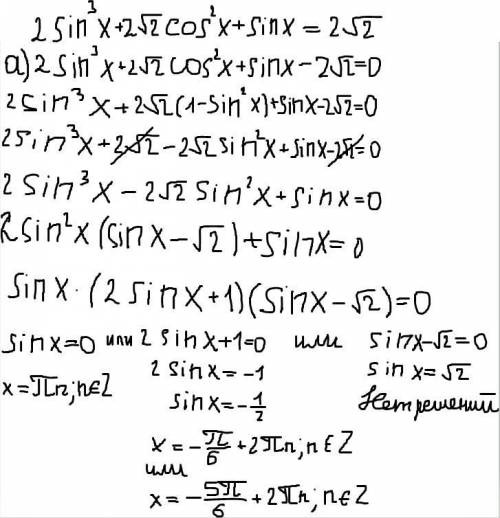 2sin³x+2√2cos²x+sinx=2√2
а)2sin³x+2√2cos²x+sinx-2√2=0
2sin³x+2√2(1-sin²x)+sinx-2√2=0
2sin³x+2√2-2√2sin²x+sinx-2√2=0
2sin³x-2√2sin²x+sinx=0
2sin²x(sinx-√2)+sinx=0
sinx·(2sinx+1)(sinx-√2)=0
sinx=0 или 2sinx+1=0 или sinx-√2=0
x=πn;n∈Z 2sinx=-1 sinx=√2
sinx=-1/2 Нет решений
x=-π/6+2πn;n∈Z
или
x=-5π/6+2πn;n∈Z